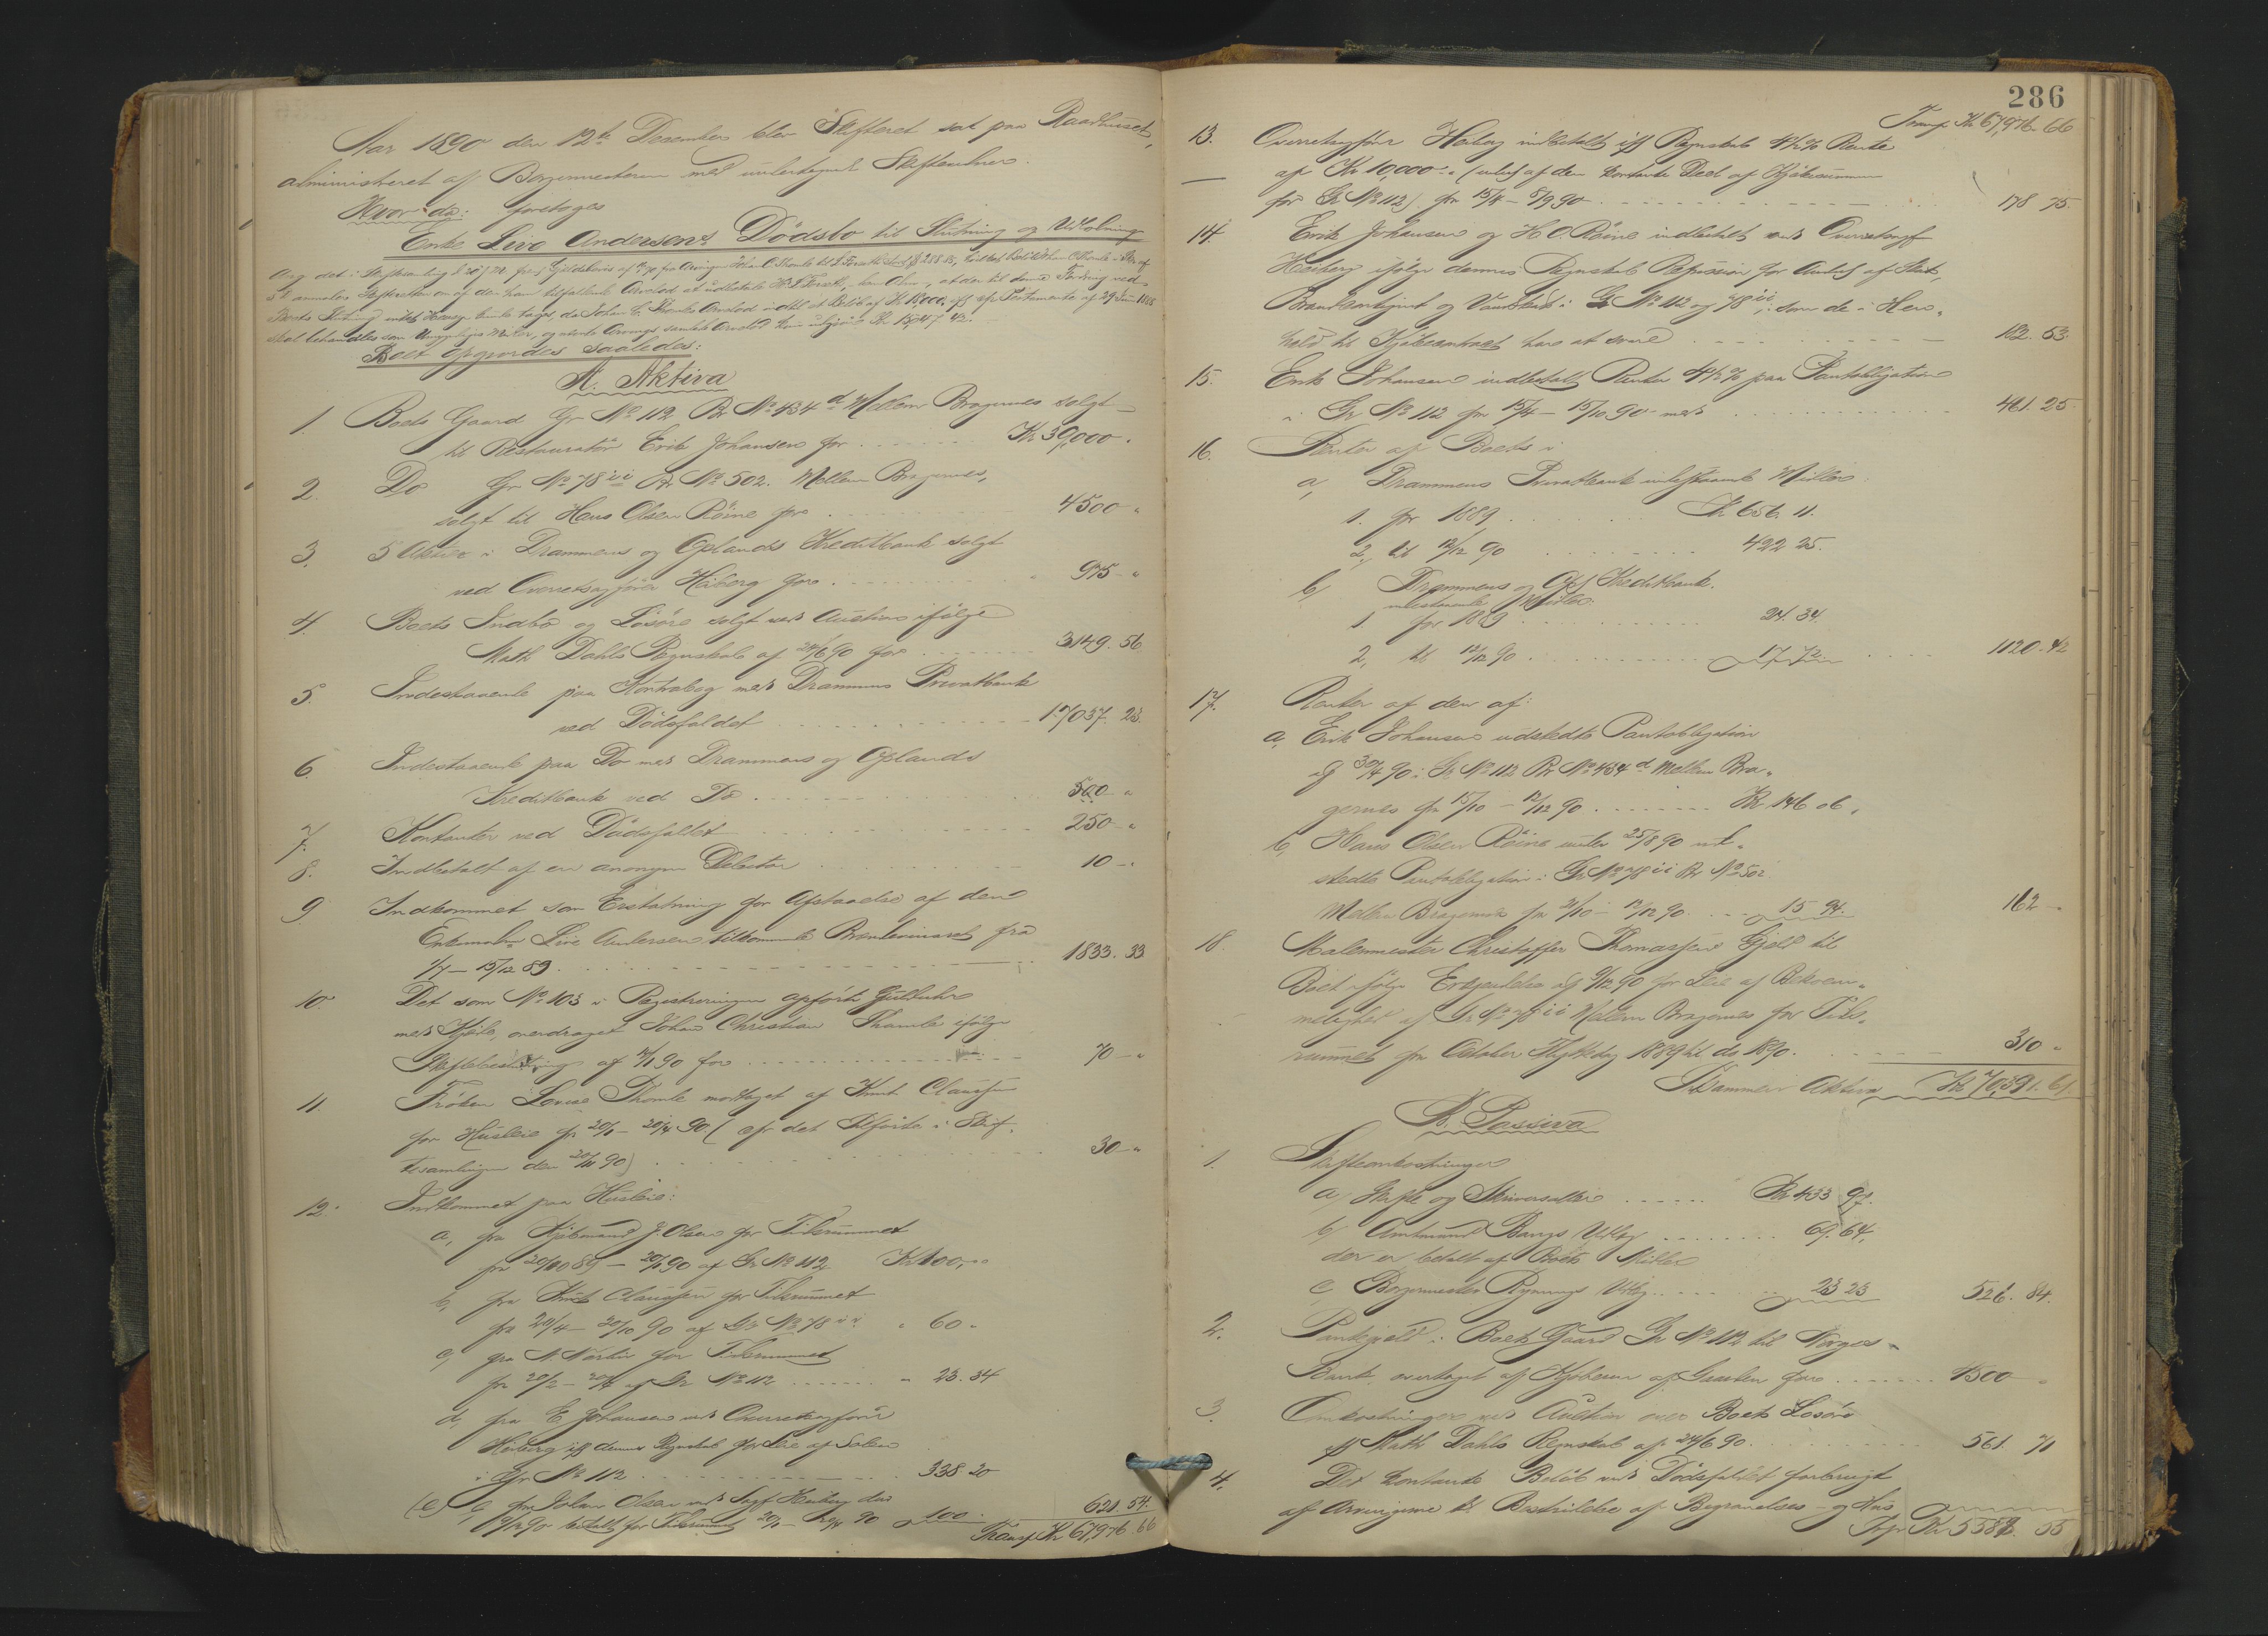 Aar 1890 den 12te December blev Skifteret sat paa Raadhuset,
administreret af Borgermesteren med undertegnet Skifteskriver.
Hvor da: foretages
Enke Live Andersens Dødsbo til Slutning og Udlodning
Boet opgjordes saaledes:
A. Aktiva
1. Boets Gaard Gr No 112 Br No 434 d Mellem Bragernes solgt
til Restauratør Erik Johansen for Kr 39,000 "
2. Do Gr No 78 ii Br No 502. Mellem Bragernes,
solgt til Hans Olsen Röine for 4500 "
3. 5 Aktier i Drammens og Oplands Kreditbank solgt
ved Overretssagfører Heiberg for 975 "
4. Boets Indbo og Løsøre solgt ved Auction ifølge
Math Dahls Regnskab af 24/6 90 for 3149. 56
5. Indestaaende paa Kontrabog med Drammens Privatbank
ved Dødsfaldet 17037. 23.
6. Indestaaende paa Do med Drammens og Oplands
Kreditbank ved Do 500 "
7. Kontanter ved Dødsfaldet 250 "
8. Indbetalt af en anonym Debitor 10 "
9. Indkommet som Erstatning for Afstaaelse af den
Enkemadm Live Andersen tilkommende Brændevinsret fra
1/7 – 15/12 89 1833. 33
10. Det som No 103 i Registreringen opførte Gulduhr
med Kjede, overdraget Johan Christian Thomle ifølge
Skiftebeslutning af 90 for 70 "
11 Frøken Lovise Thomle modtaget af Knut Claussen
for Husleie fr 20/1 – 20/4 90 ( efr det Tilførte i Skif-
tesamlingen den 20/11 90) 30 "
12. Indkommet paa Husleie:
a, fra Kjøbmand J. Olsen for Tidsrummet
fra 20/10 89 – 20/1 90 af Gr No 112 Kr 100, "
b, fra Knut Claussen for Tidsrummet
fra 20/4 – 20/10 90 af Gr No 78 ii " 60 "
c, fra N. for Tidsrummet
fr 20/2 – 20/4 af Gr No 112 " 23. 34
d, fra E Johansen ved Overretssagfører
Heiberg iflg dennes Regnskab for Leie af Salen
i Gr No 112 338. 20
(e) fra Johan Olsen ved Sagf Heiberg den
90 betalt for Tidsrummet 20/1 – 20/4 90 100. 621. 54.
Transp. Kr 67,976. 66
286
Transp. Kr 67,976. 66
13. Overretssagfører Heiberg indbetalt iflg Regnskab 4 1/2 % Rente
af Kr 10,000 " ( af den kontante Deel af Kjøbesummen
for Gr No 112) fra 15/4 – 8/9 90 178 75.
14. Erik Johansen og H. O. Röine indbetalt ved Overretssagf
Heiberg ifølge dennes Regnskab Refusion for Andel af Skat,
Brandkontingent og Vandskat i Gr No 112 og 78 ii, som de i Hen-
hold til Kjøbekontract have at svare 182. 53.
15. Erik Johansen indbetalt Renter 4 1/2 % paa Pantobligation
i Gr No 112 fra 15/4 – 15/10 90 med 461. 25.
16. Renter af Boets i
a, Drammens Privatbank indestaaende Midler:
1. for 1889 Kr 656. 11.
2, til 12/12 90 422 25.
b, Drammens og Opl. Kreditbank.
indestaaende Midler.
1 for 1889 24. 34.
2, til 12/12 90 17. 72. 1120. 42
17. Renter af den af:
a, Erik Johansen udstedte Pantobligation
af 30/4 90 i Gr No 112 Br No 434 d Mellem Bra-
gernes fra 15/10 – 12/12 90 Kr 146 06,
b, Hans Olsen Röine under 25/8 90 ud-
stedte Pantobligation i Gr No 78 ii Br No 502
Mellem Bragernes fra 21/10 – 12/12 90 15 94. 162 –
18. Malermester Christoffer Thomassens Gjeld til
Boet ifølge Erkjendelse af 90 for Leie af Bekvem-
melighed af Gr No 78 ii Mellem Bragernes for Tids-
rummet fra October Flyttedag 1889 til do 1890. 310 "
Summen Aktiva Kr 70,391. 61.
B. Passiva
1. Skifteomkostninger
a, Skifte og Skriversalær Kr 433 97.
b, Amtmand Bangs Udlæg 69. 64,
der er betalt af Boets Midler
c, Borgermester Rynnings Udlæg 23 23 526. 84.
2. Pantegjæld i Boets Gaard Gr No 112 til Norges
Bank overtaget af Kjøberen af Gaarden for 4500 "
3. Omkostninger ved Auction over Boets Løsøre
iflg Math Dahls Regnskab af 24/6 90 561. 71
4. Det kontante Beløb ved Dødsfaldet forbrugt
af Arvingerne til Bestridelse af Begravelses- og Hus
Trsp. Kr 5588. 55